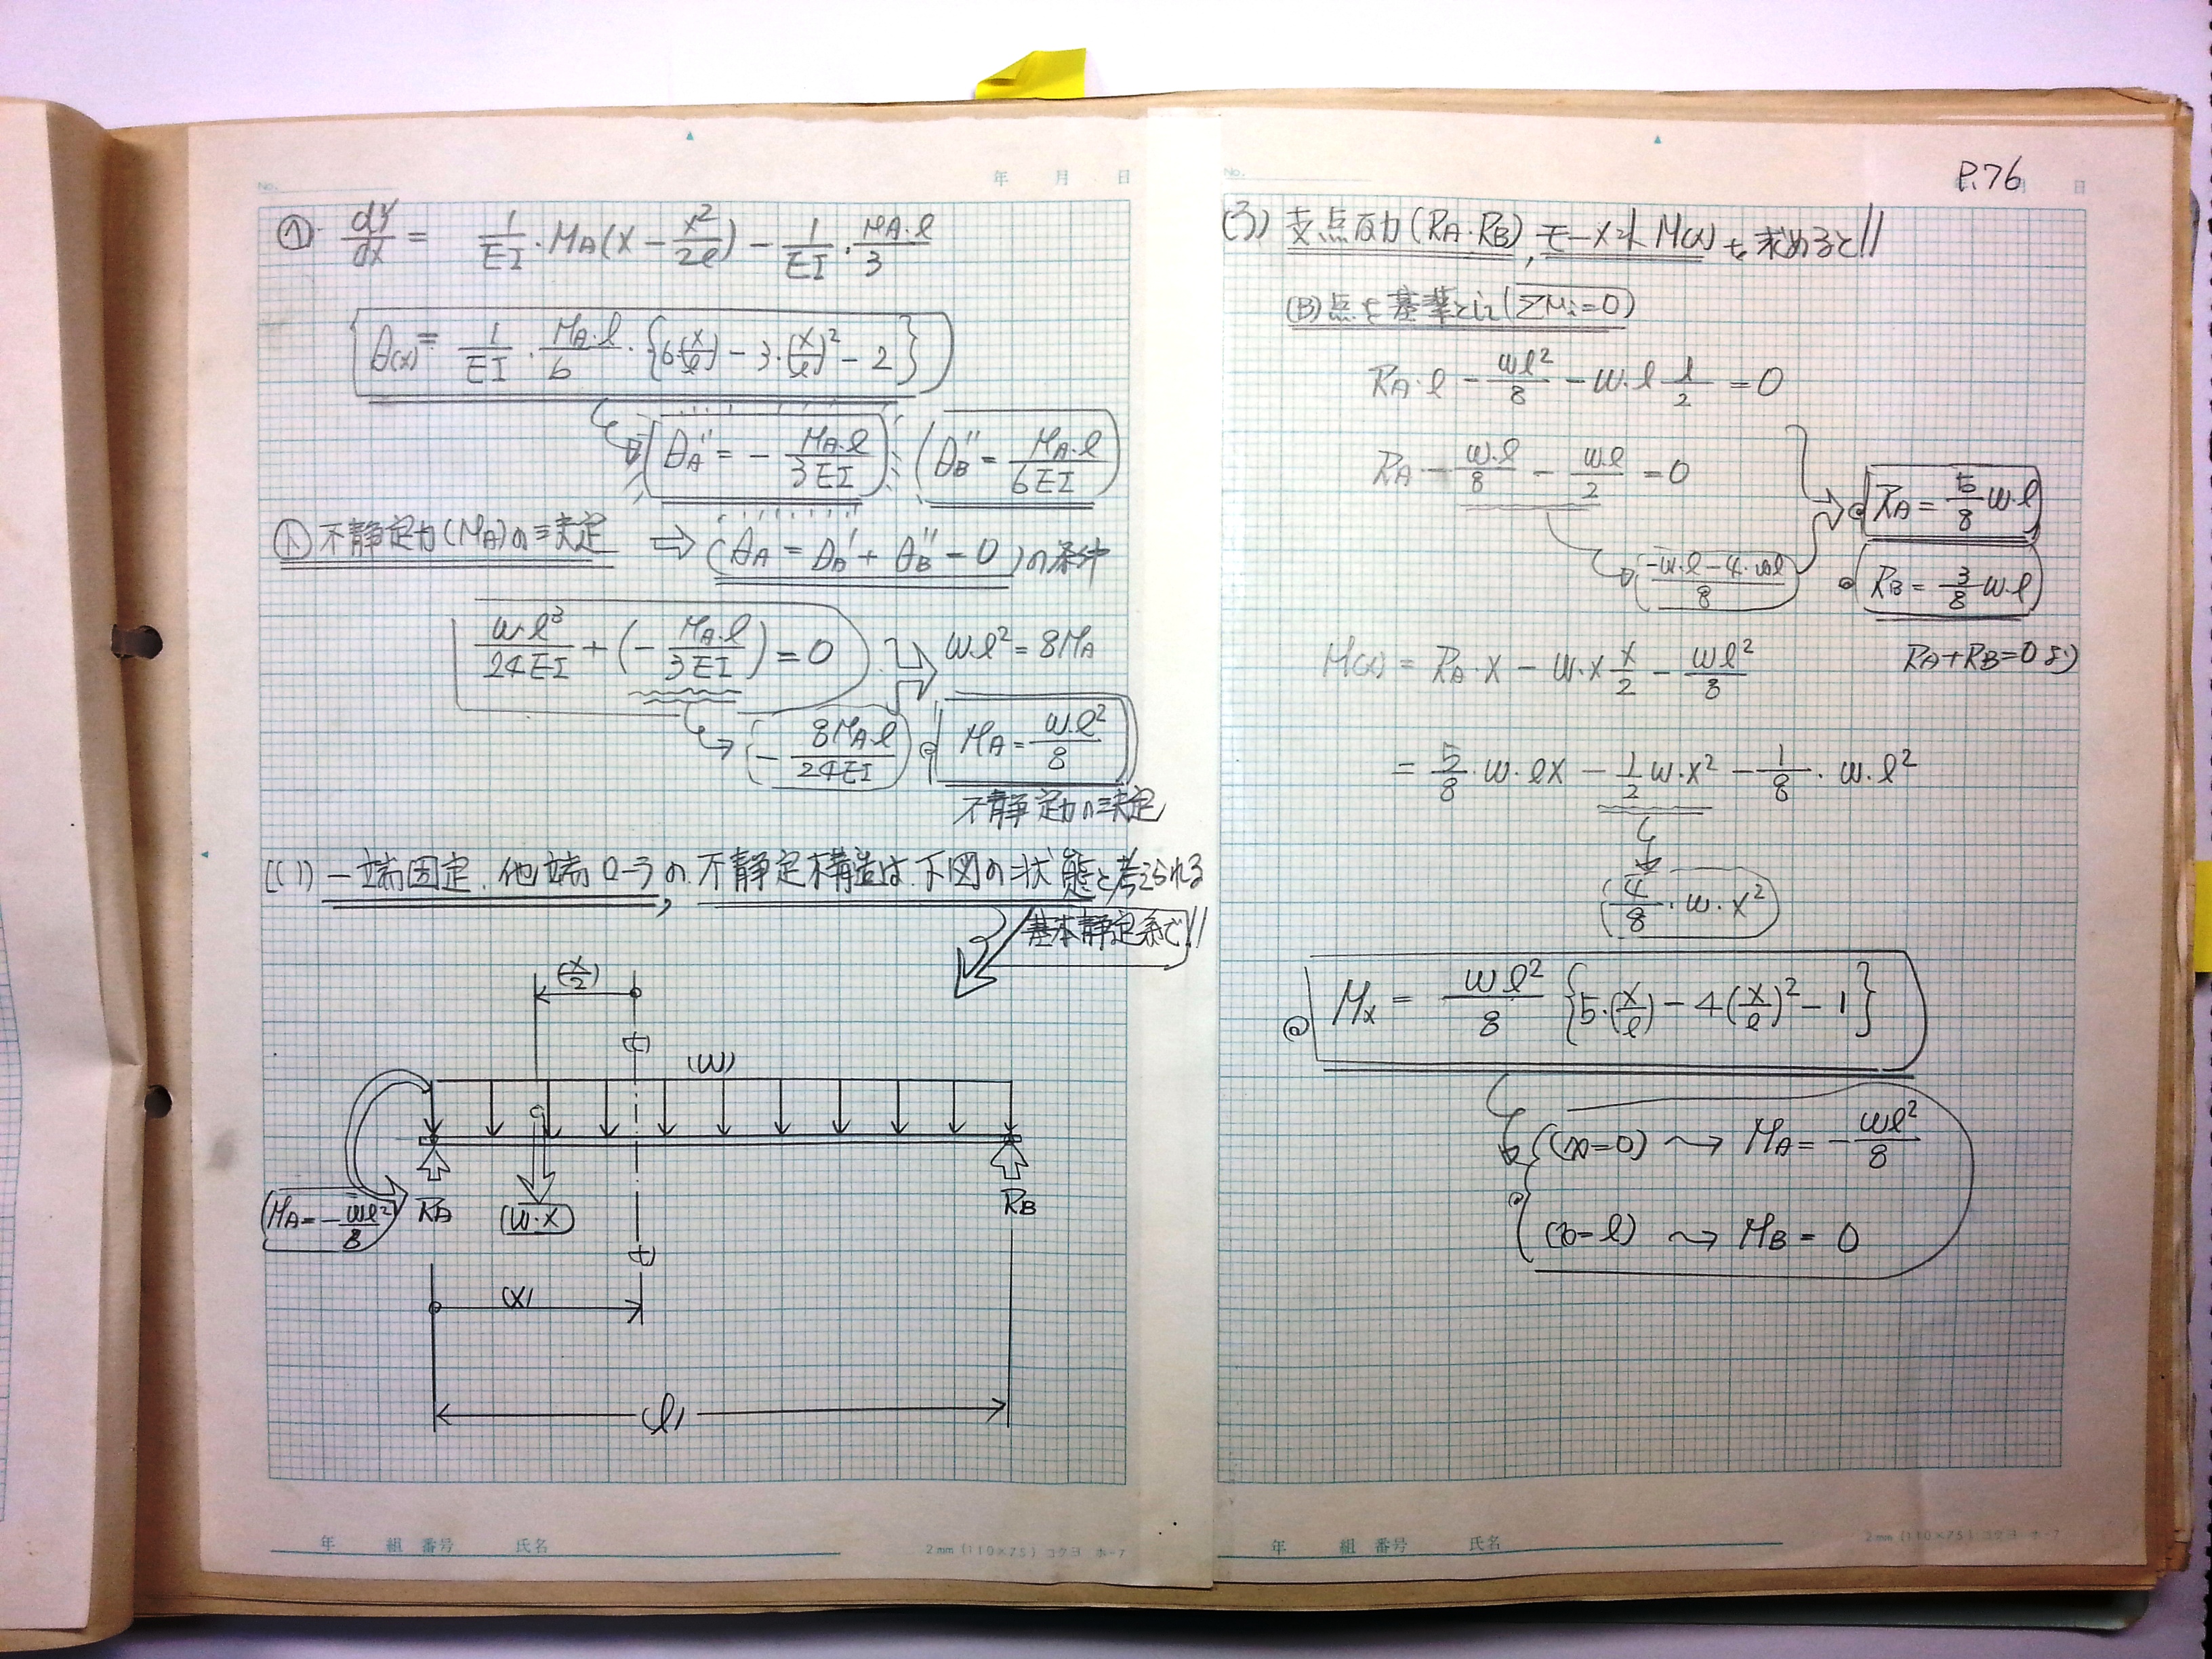 No. 年 月 日
① dy/dx = 1/EI・MA(x - x²/2l) - 1/EI・MA・l/3
θ(x) = 1/EI・MA・l/6・{6(x/l) - 3・(x/l)² - 2}
θA'' = - MA・l/3EI (θB'' = MA・l/6EI
不静定力(MA)の決定 ⇒ (θA = θA' + θB'' = 0)の条件
w・l³/24EI + (- MA・l/3EI) = 0 w・l² = 8MA
- 8MA・l/24EI MA = w・l²/8
不静定力の決定
一端固定、他端ローラの、不静定構造は、下図の状態と考えられる
基本静定系で!!
(x/2)
(t)
(w)
MA = - wl²/8 RA (w・x) RB
(t)
(x)
(l)
年 組 番号 氏名 2mm (110×75) コクヨ ホ-7
No. P.76 月 日
(3) 支点反力(RA・RB), モーメントM(x)を求めると!!
(B)点を基準として(ΣMi=0)
RA・l - wl²/8 - w・l l/2 = 0
RA - w・l/8 - wl/2 = 0
RA = 5/8 w・l
-w・l-4・wl/8
RB = 3/8 w・l
M(x) = RA・x - w・x x/2 - wl²/8 RA+RB=0より
= 5/8・w・lx - 1/2 w・x² - 1/8・w・l²
4/8・w・x²
Mx = wl²/8 {5・(x/l) - 4(x/l)² - 1}
(x=0) → MA = - wl²/8
(x=l) → MB = 0
年 組 番号 氏名 2mm (110×75) コクヨ ホ-7